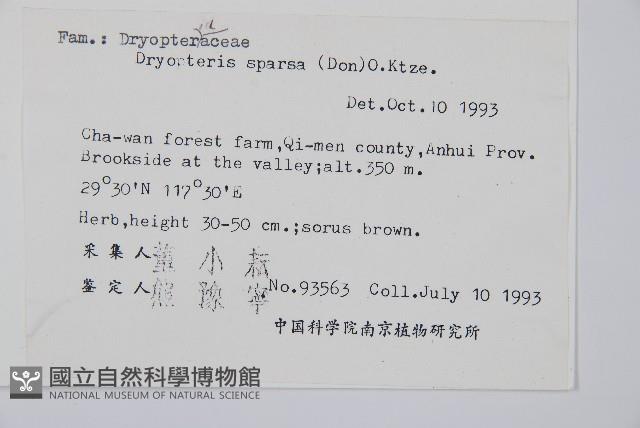 Fam.: Dryopteraceae
Dryopteris sparsa (Don)O.Ktze.
Det.Oct.10 1993
Cha-wan forest farm,Qi-men county,Anhui Prov.
Brookside at the valley;alt.350 m.
29°30'N 117°30'E
Herb,height 30-50 cm.;sorus brown.
采集人 董小耘
鉴定人 熊豫宁 No.93563 Coll.July 10 1993
中国科学院南京植物研究所
國立自然科學博物館
NATIONAL MUSEUM OF NATURAL SCIENCE